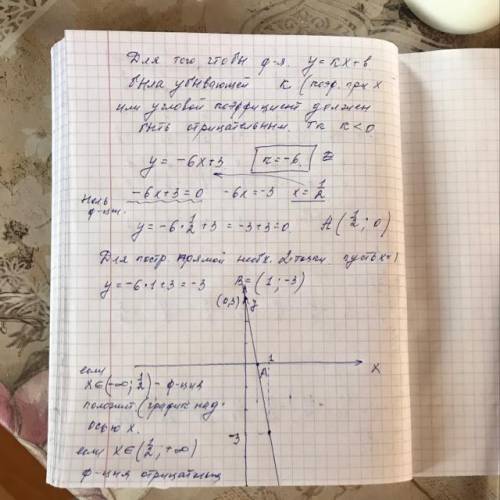 Для того, чтобы ф-я y = kx + b
была убывающей k (коэф. при x
или угловой коэффициент должен
быть отрицательным. тк k < 0
y = -6x + 3 k = -6
Ноль ф-ции. -6x + 3 = 0 -6x = -3 x = 1/2
y = -6 · 1/2 + 3 = -3 + 3 = 0 A (1/2 ; 0)
Для постр. прямой необх. 2 точки пусть x = 1
y = -6 · 1 + 3 = -3 B = (1 ; -3)
(0,3) y
1
A x
если
x ∈ (-∞; 1/2) - ф-ция
положит (график над
осью x.
-3
если x ∈ (1/2 ; +∞)
ф-ция отрицательна